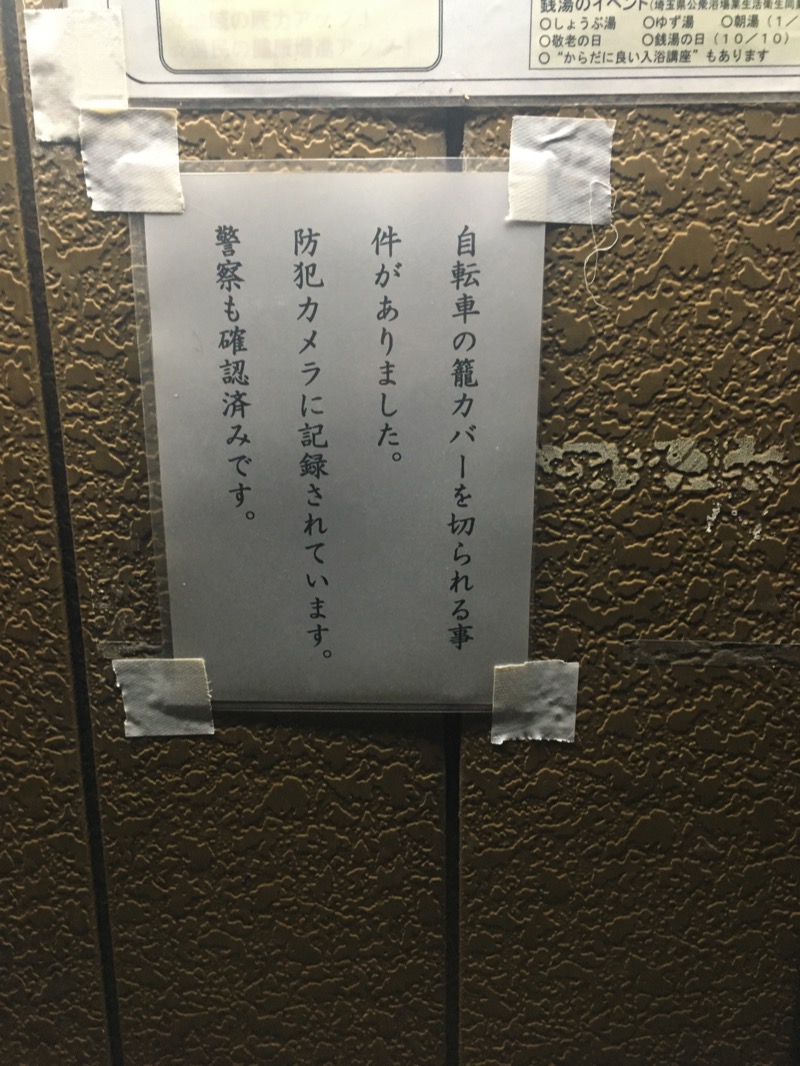 銭湯のイベント(埼玉県公衆浴場業生活衛生同
○しょうぶ湯 ○ゆず湯 ○朝湯(1/
○敬老の日 ○銭湯の日(10/10)
○“からだに良い入浴講座”もあります
自転車の籠カバーを切られる事
件がありました。
防犯カメラに記録されています。
警察も確認済みです。